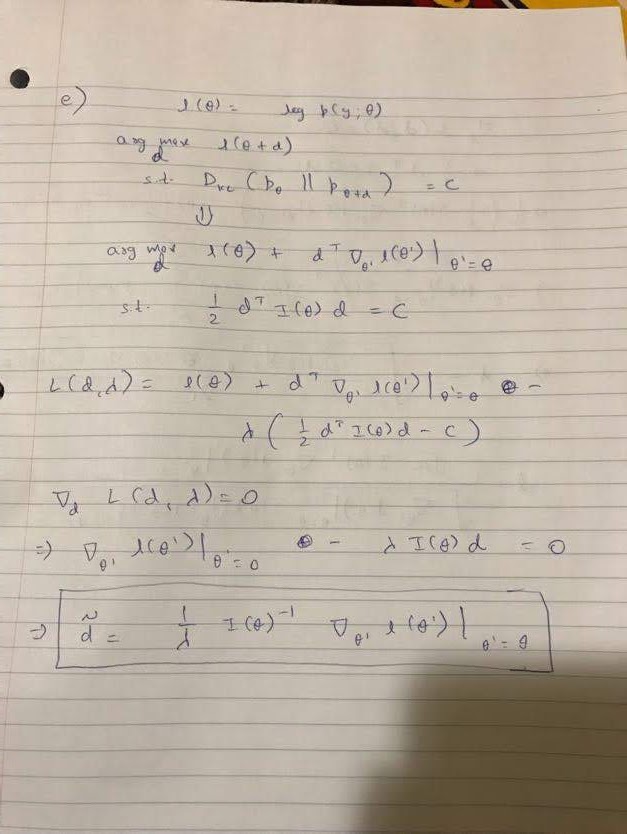 e) l(θ) = log p(y; θ)
arg max_d l(θ + d)
s.t. D_KL (p_θ || p_θ+d) = C
⇓
arg max_d l(θ) + d^T ∇_θ' l(θ')|_θ'=θ
s.t. 1/2 d^T I(θ) d = C
L(d, λ) = l(θ) + d^T ∇_θ' l(θ')|_θ'=θ -
λ (1/2 d^T I(θ) d - C)
∇_d L(d, λ) = 0
⇒ ∇_θ' l(θ')|_θ'=θ - λ I(θ) d = 0
⇒ d̃ = 1/λ I(θ)^-1 ∇_θ' l(θ')|_θ'=θ